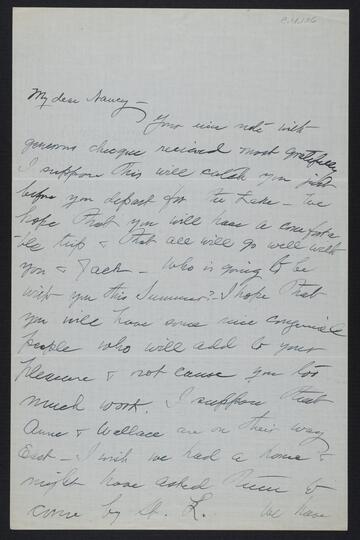 My dear Nancy —
Your nice note with
generous cheque received most gratefully
I suppose this will catch you just
before you depart for the Lake — I've
hope that you will have a comforta-
ble trip & that all will go well with
you & Jack — Who is going to be
with you this Summer? I hope that
you will have some nice congenial
people who will add to your
pleasure & not cause you too
much work. I suppose that
Anne & Wallace are on their way
East — I wish we had a home &
might have asked them to
come by St. L. We have